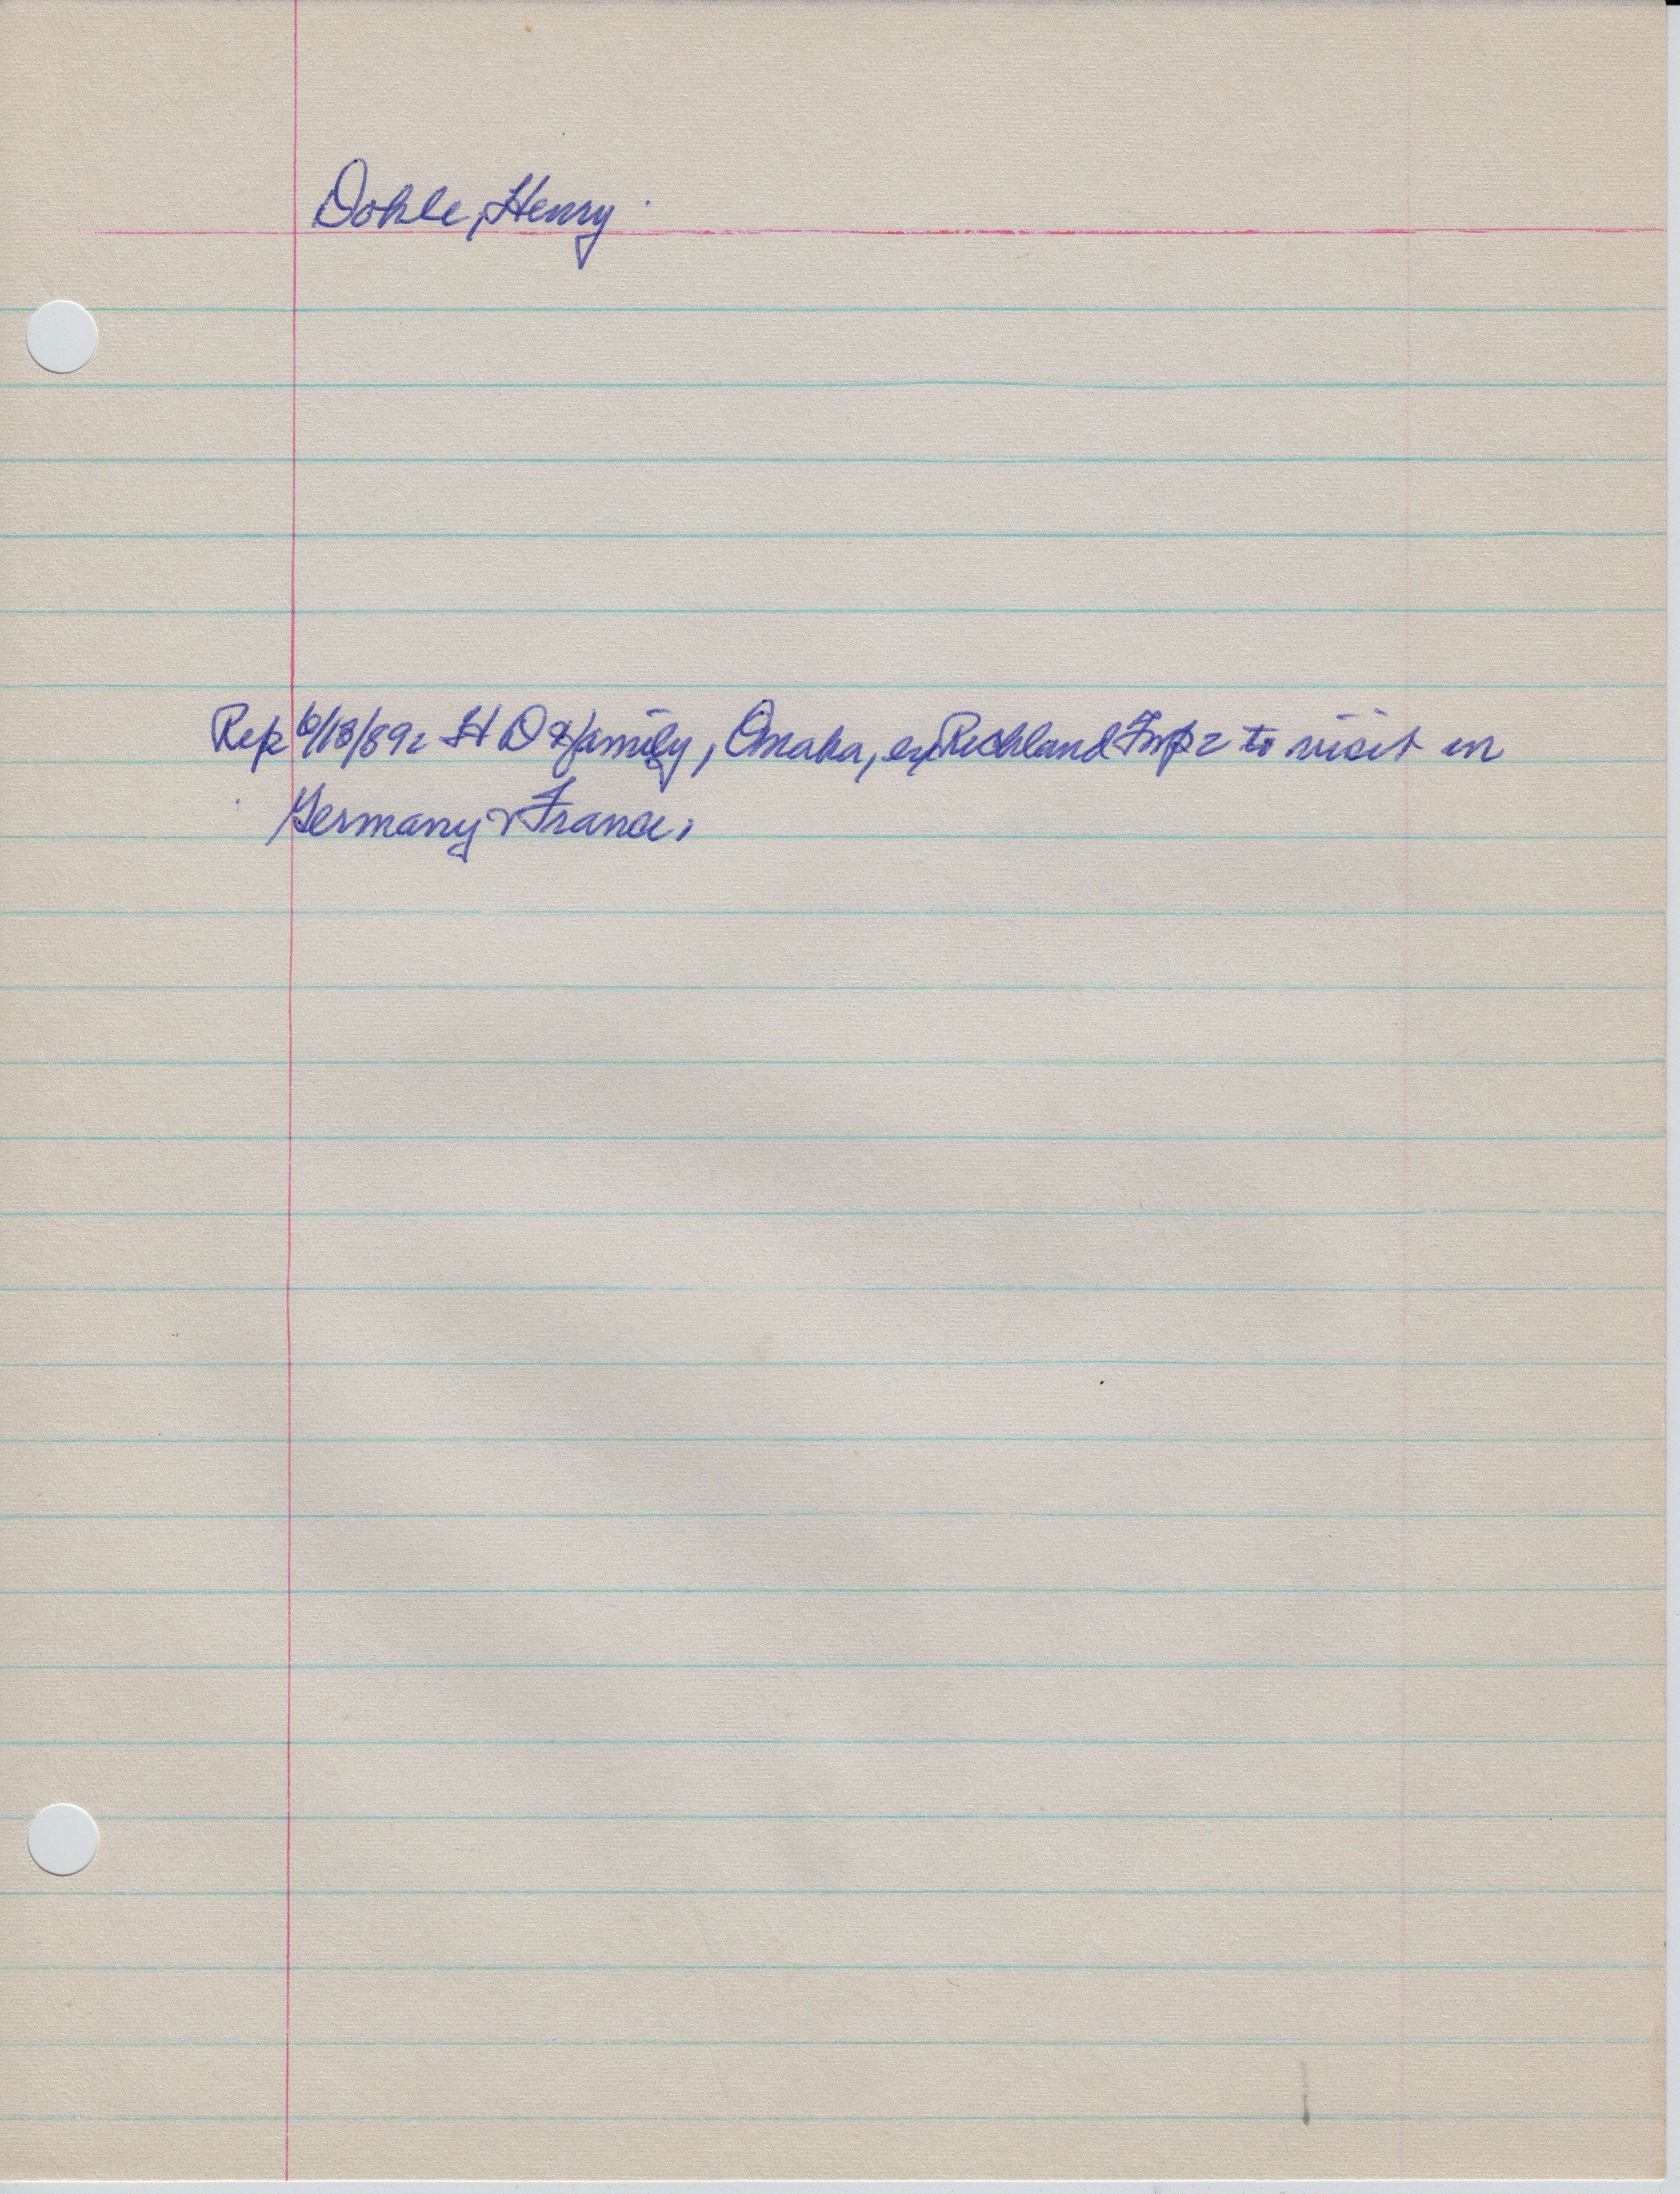 Dohle, Henry
Rep 6/13/89: H D & family, Omaha, ex Richland Twp: to visit in
Germany & France.